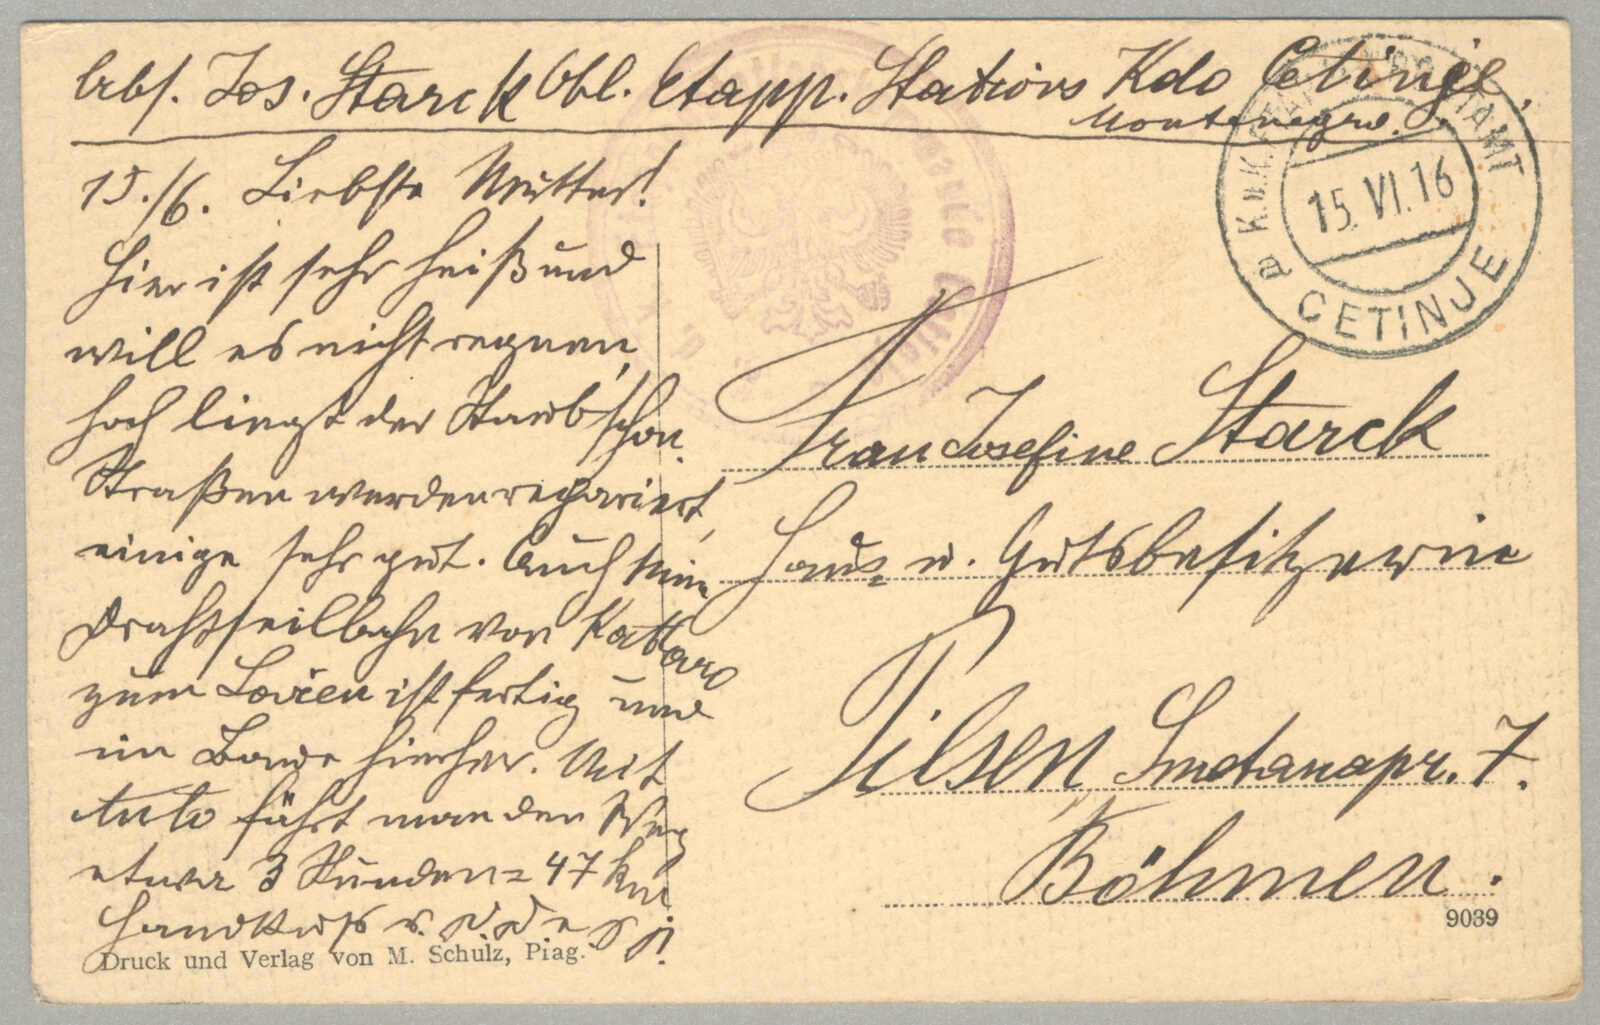 Abs. Jos. Starck Obl. Etapp. Stations Kdo Cetinje,
Montenegro.
15./6. Liebste Mutter!
Hier ist sehr heiß und
will es nicht regnen,
hoch liegt der Staub schon.
Straßen werden repariert,
einige sehr gut. Auch
Drahtseilbahn von Kattaro
zum Lovcen ist fertig und
im Baue hierher. Mit
Auto fährt man den Weg
etwa 3 Stunden = 47 km
Handkuß
Druck und Verlag von M. Schulz, Prag.
K.u.K. ETAPPENPOSTAMT
15.VI.16
a
CETINJE
Frau Josefine Starck
Haus= u. Gutsbesitzerin
Pilsen Smetanapr. 7.
Böhmen.
9039